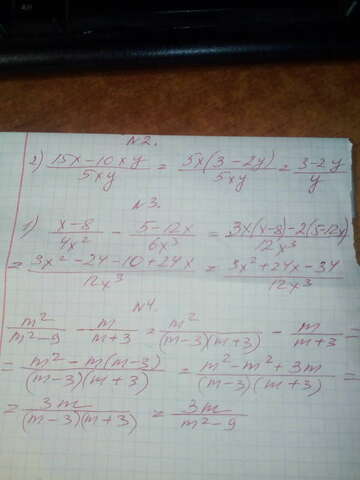 N2.
2) (15x-10xy)/(5xy) = (5x(3-2y))/(5xy) = (3-2y)/y
N3.
1) (x-8)/(4x²) - (5-12x)/(6x³) = (3x(x-8)-2(5-12x))/(12x³)
= (3x²-24-10+24x)/(12x³) = (3x²+24x-34)/(12x³)
N4.
m²/(m²-9) - m/(m+3) = m²/((m-3)(m+3)) - m/(m+3) =
= (m²-m(m-3))/((m-3)(m+3)) = (m²-m²+3m)/((m-3)(m+3)) =
= 3m/((m-3)(m+3)) = 3m/(m²-9)